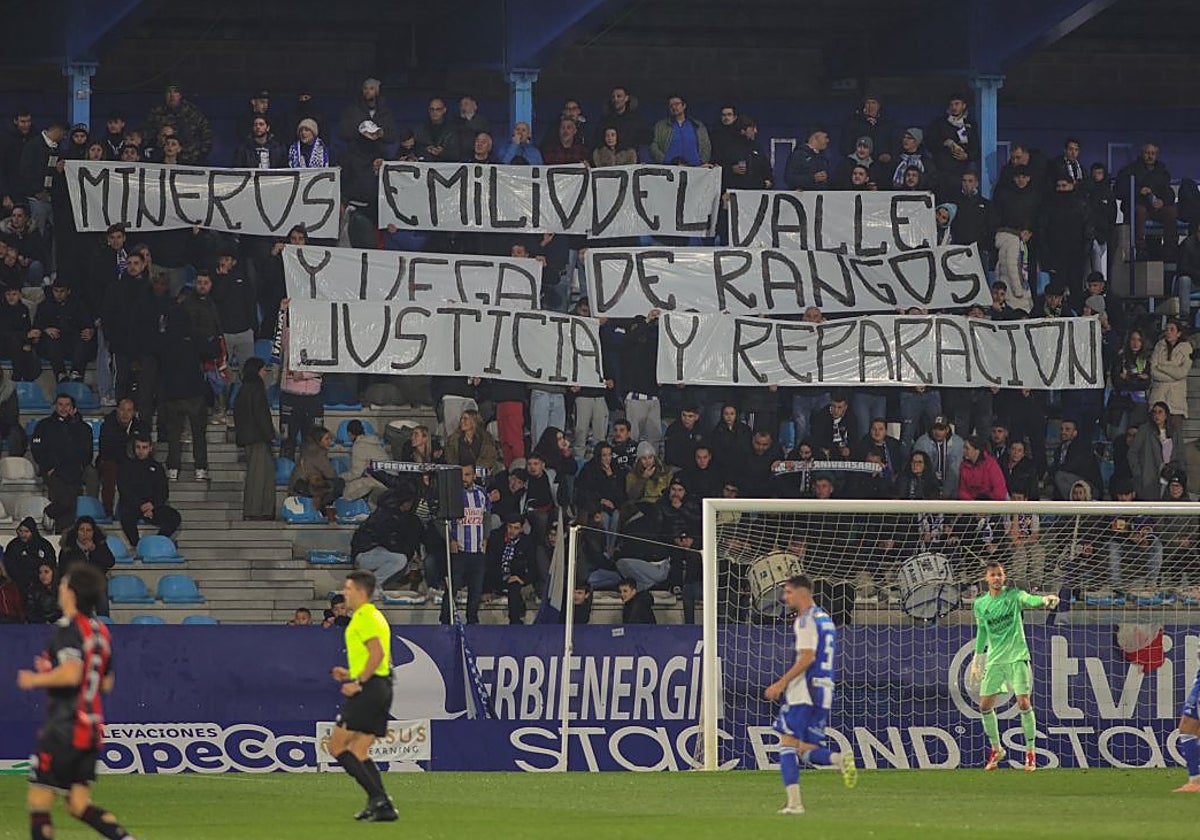 MINEROS EMILIO DEL VALLE
Y VEGA DE RANGOS
JUSTICIA Y REPARACION
FRENTE
ANIVERSARIO
ERBIENERGÍA
tvi
ELEVACIONES
STAC BOND
STAC
LEARNING
5